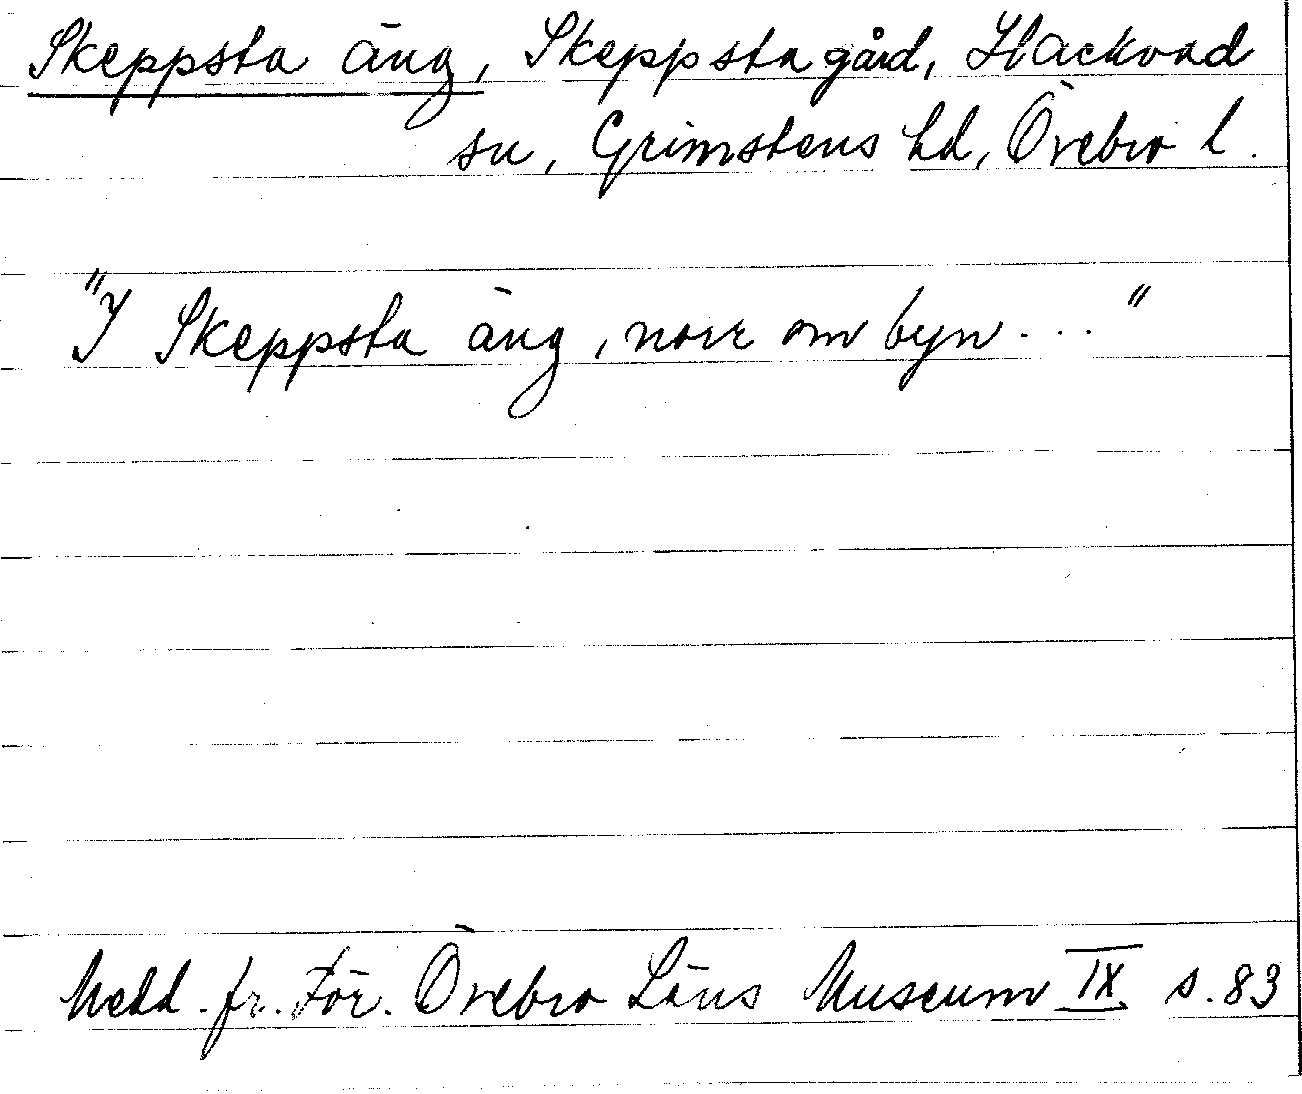 Skeppsta äng, Skeppsta gård, Hackvad
sn, Grimstens hd, Örebro l.
"I Skeppsta äng, norr om byn..."
Medd. fr. För. Örebro Läns Museum IX s. 83